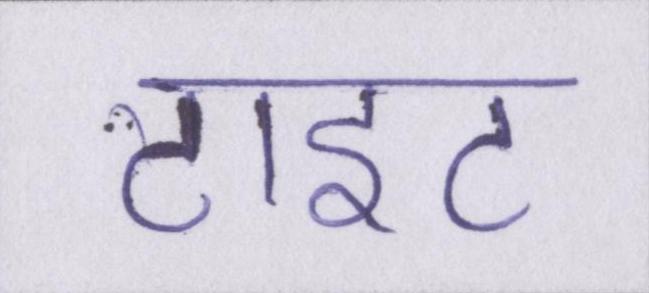 टाइट